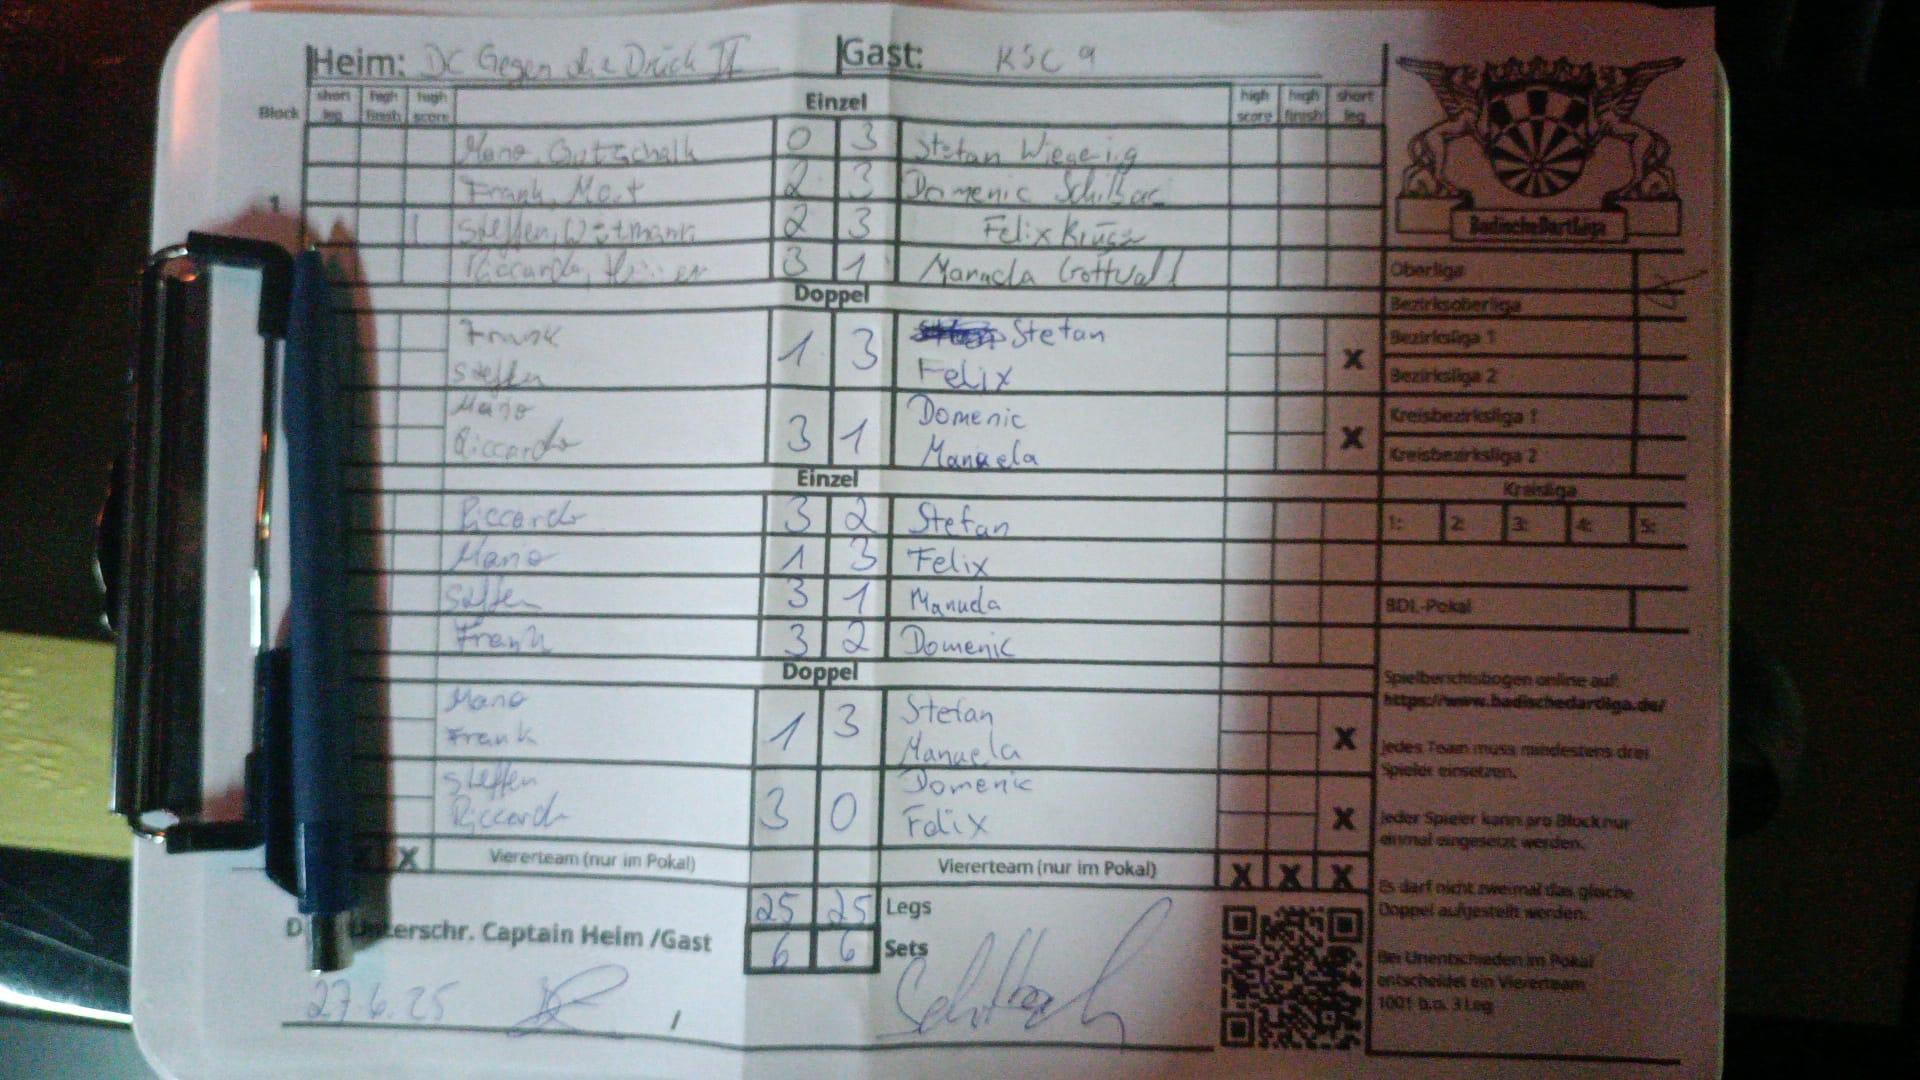 Heim: DC Gegen die Drück II Gast: KSC 9
Block short leg high finish high score Einzel high score high finish short leg
0 3 Stefan
1 Frank, 2 3 Domenic
Steffen, 2 3 Felix
3 1 Manuela Gottwall
Doppel
Frank 1 3 Stefan
Steffen Felix X
Mario 3 1 Domenic
Riccardo Manuela X
Einzel
Riccardo 3 2 Stefan
Mario 1 3 Felix
Steffen 3 1 Manuela
Frank 3 2 Domenic
Doppel
Mario 1 3 Stefan
Frank Manuela X
Steffen 3 0 Domenic
Riccardo Felix X
X Viererteam (nur im Pokal) Viererteam (nur im Pokal) X X X
25 25 Legs
Unterschr. Captain Heim /Gast 6 6 Sets
27.6.25 /
BadischeDartLiga
Oberliga
Bezirksoberliga
Bezirksliga 1
Bezirksliga 2
Kreisbezirksliga 1
Kreisbezirksliga 2
Kreisliga
1: 2: 3: 4: 5:
BDL-Pokal
Spielberichtsbogen online auf:
https://www.badischedartliga.de/
Jedes Team muss mindestens drei
Spieler einsetzen.
Jeder Spieler kann pro Block nur
einmal eingesetzt werden.
Es darf nicht zweimal das gleiche
Doppel aufgestellt werden.
Bei Unentschieden im Pokal
entscheidet ein Viererteam
1001 b.o. 3 Leg